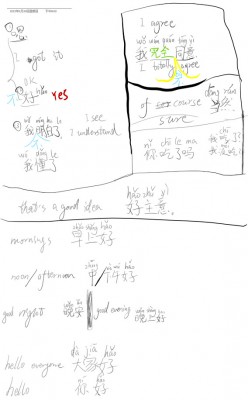 I agree
wǒ wán quán tóng yì
我完全同意
I totally agree
I got it
OK
不好 hǎo yes
of course
sure
dāng rán
当然
wǒ míng bái le
我明白了
I see
I understand
wǒ dǒng le
我懂了
nǐ chī le ma
你吃了吗
that's a good idea
hǎo zhǔ yì
好主意
zǎo shàng hǎo
早上好
noon/afternoon
中/下午好
good night
wǎn ān
晚安
good evening
wǎn shàng hǎo
晚上好
hello everyone
dà jiā hǎo
大家好
hello
你好